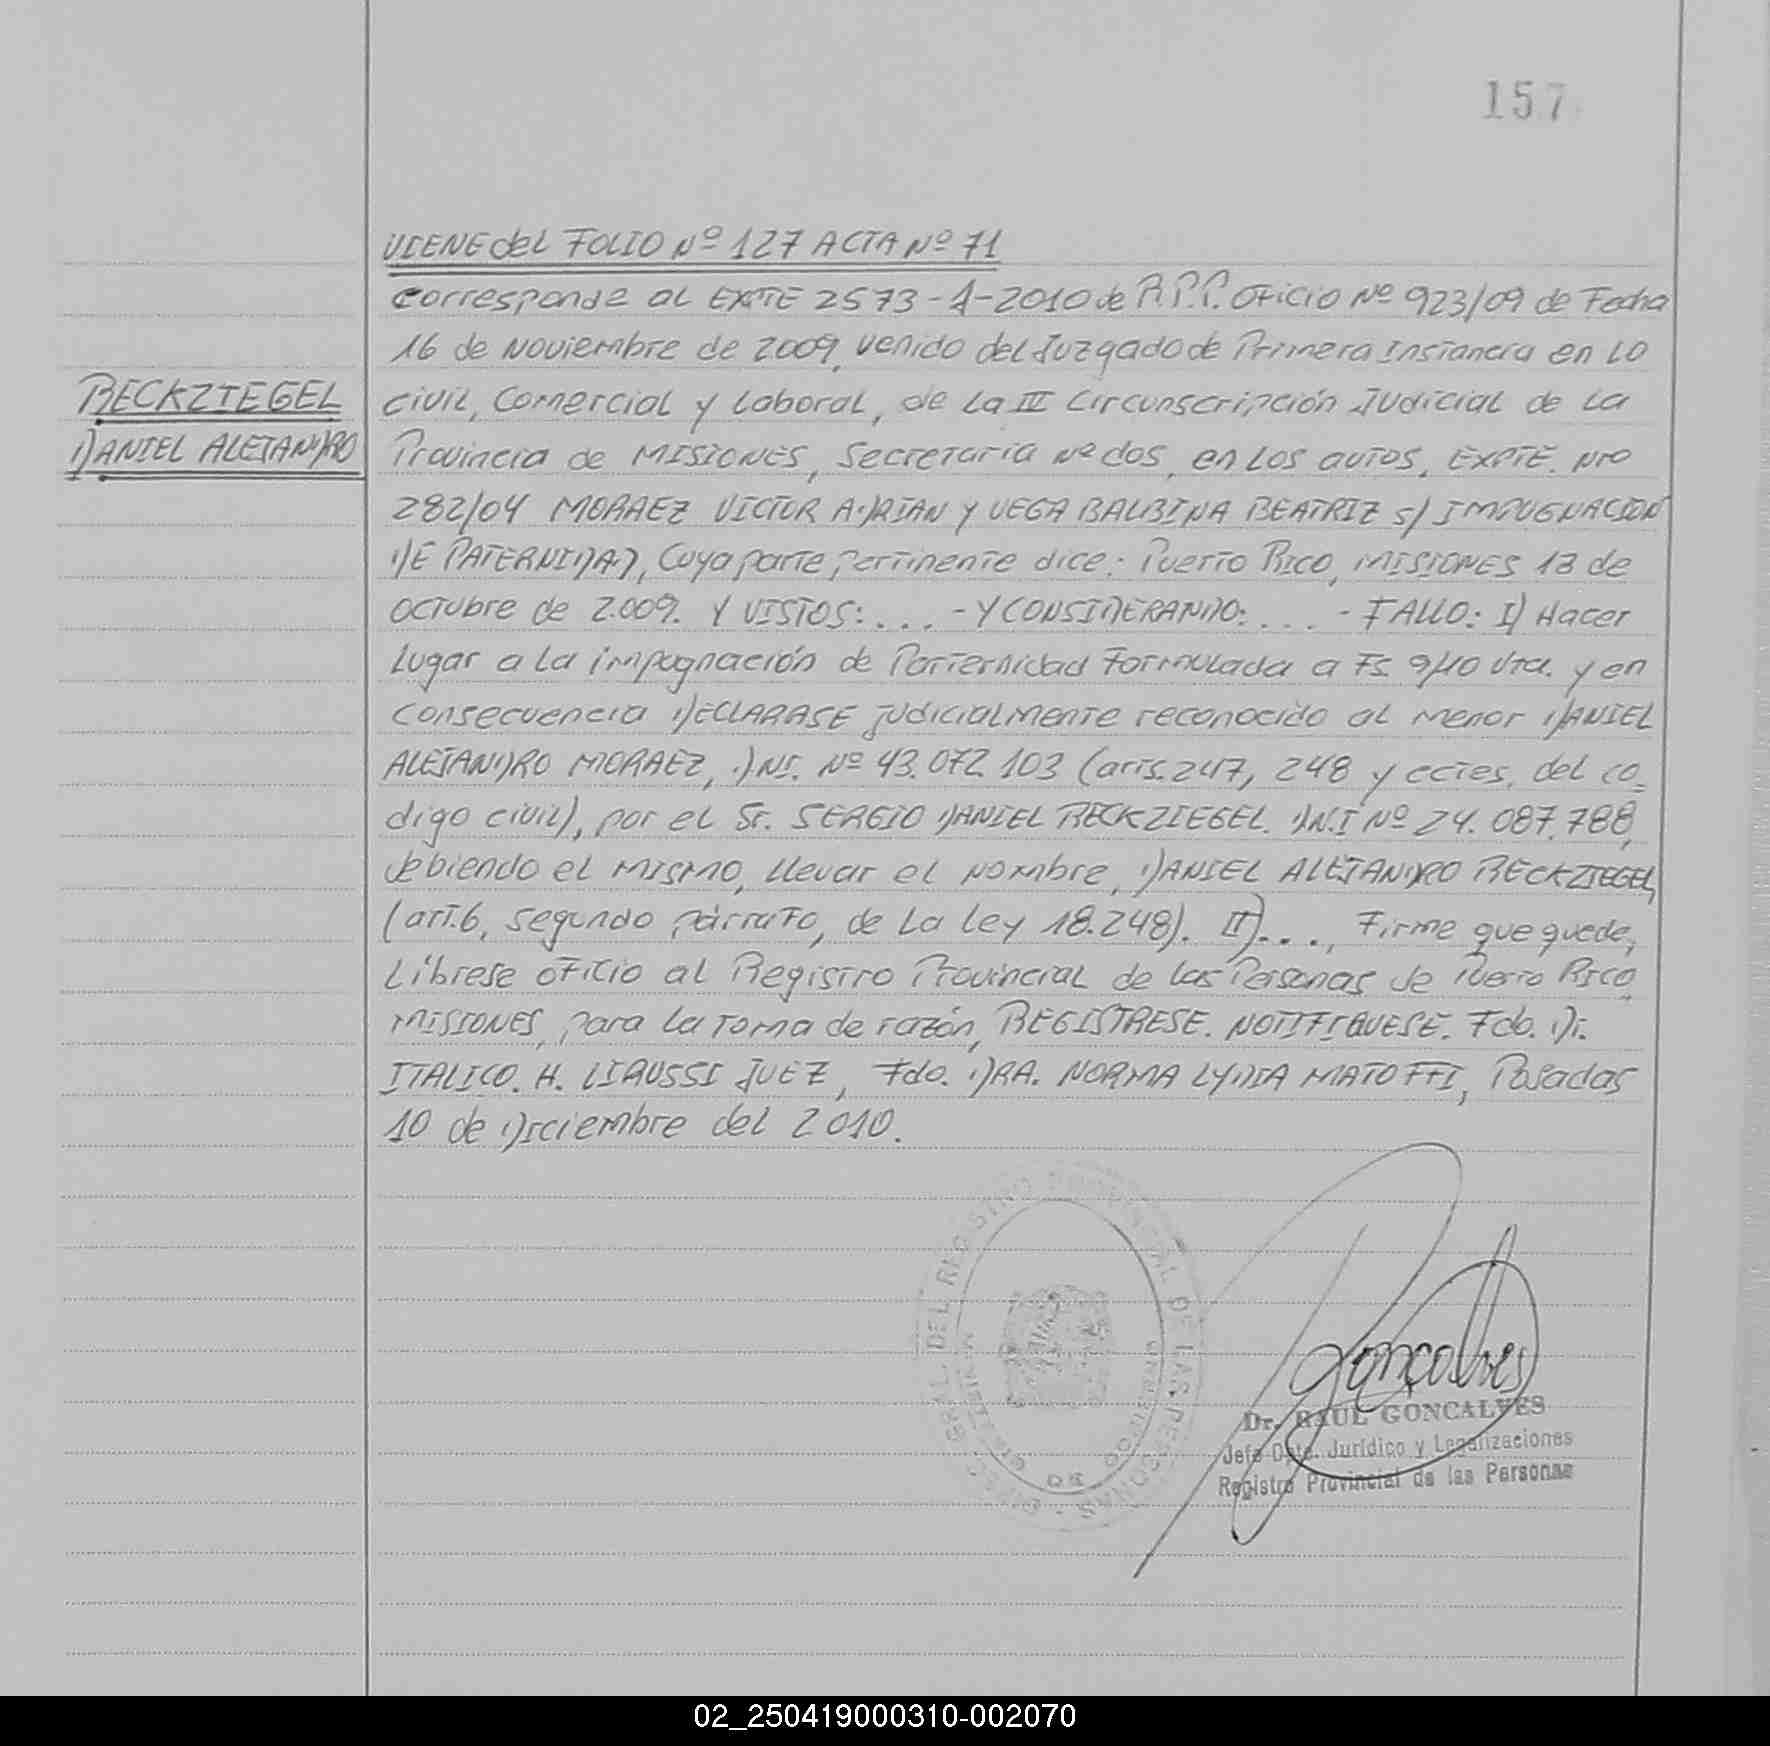 157
VIENE del FOLIO Nº 127 ACTA Nº 71
corresponde al EXPTE 2573-A-2010 de R.P.P. OFICIO Nº 923/09 de Fecha
16 de Noviembre de 2009, venido del Juzgado de Primera Instancia en lo
civil, Comercial y Laboral, de la III Circunscripción Judicial de la
Provincia de MISIONES, Secretaría Nº dos, en los autos, EXPTE. Nro
282/04 MORAEZ VICTOR ADRIAN Y VEGA BALBINA BEATRIZ S/ IMPUGNACION
DE PATERNIDAD, Cuya parte pertinente dice: Puerto Rico, MISIONES 13 de
octubre de 2.009. Y VISTOS: . . . - Y CONSIDERANDO: . . . - FALLO: I) Hacer
lugar a la impugnación de Parternidad Formulada a Fs. 9/10 Vta. y en
consecuencia DECLARASE judicialmente reconocido al menor DANIEL
ALEJANDRO MORAEZ, DNI. Nº 43.072.103 (arts. 247, 248 y cctes. del co-
digo civil), por el Sr. SERGIO DANIEL RECKZIEGEL. DN.I Nº 24.087.788,
debiendo el mismo, llevar el nombre, DANIEL ALEJANDRO RECKZIEGEL,
(art.6, segundo párrafo, de la ley 18.248). II). . ., Firme que quede,
Líbrese oficio al Registro Provincial de las Personas de Puerto Rico
MISIONES, para la toma de razón, REGISTRESE. NOTIFIQUESE. Fdo. Dr.
ITALICO. H. LIRUSSI JUEZ, Fdo. DRA. NORMA LYDIA MATOFFI, Posadas
10 de Diciembre del 2010.
RECKZIEGEL
DANIEL ALEJANDRO
DEL REGISTRO PROVINCIAL DE LAS PERSONAS
Gonçalves
Dr. RAUL GONCALVES
Jefe Dpto. Jurídico y Legalizaciones
Registro Provincial de las Personas
02_250419000310-002070